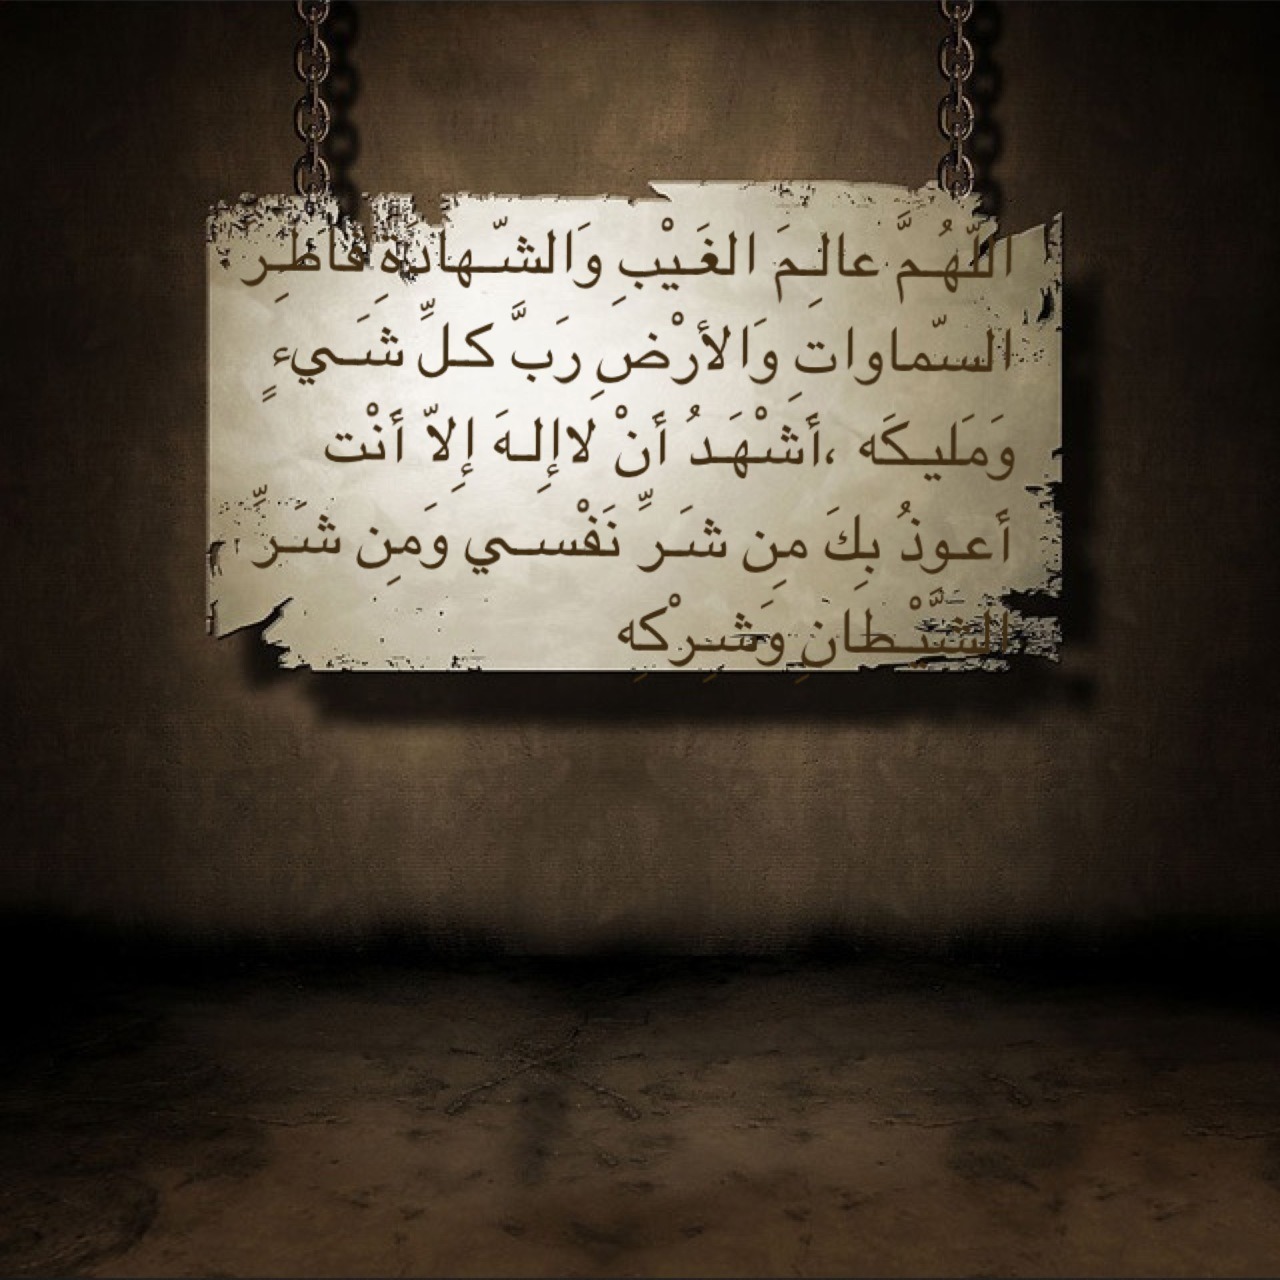 اللّهُـمَّ عالِـمَ الغَـيْبِ وَالشّـهادَةِ فاطِـرَ
السّماواتِ وَالأرْضِ رَبَّ كـلِّ شَـيءٍ
وَمَليـكَه ،أشْهَـدُ أنْ لاإِلـهَ إِلاّ أنْت
أعـوذُ بِكَ مِن شَـرِّ نَفْسـي وَمِن شَـرِّ
الشَّيْـطانِ وَشِـرْكِه